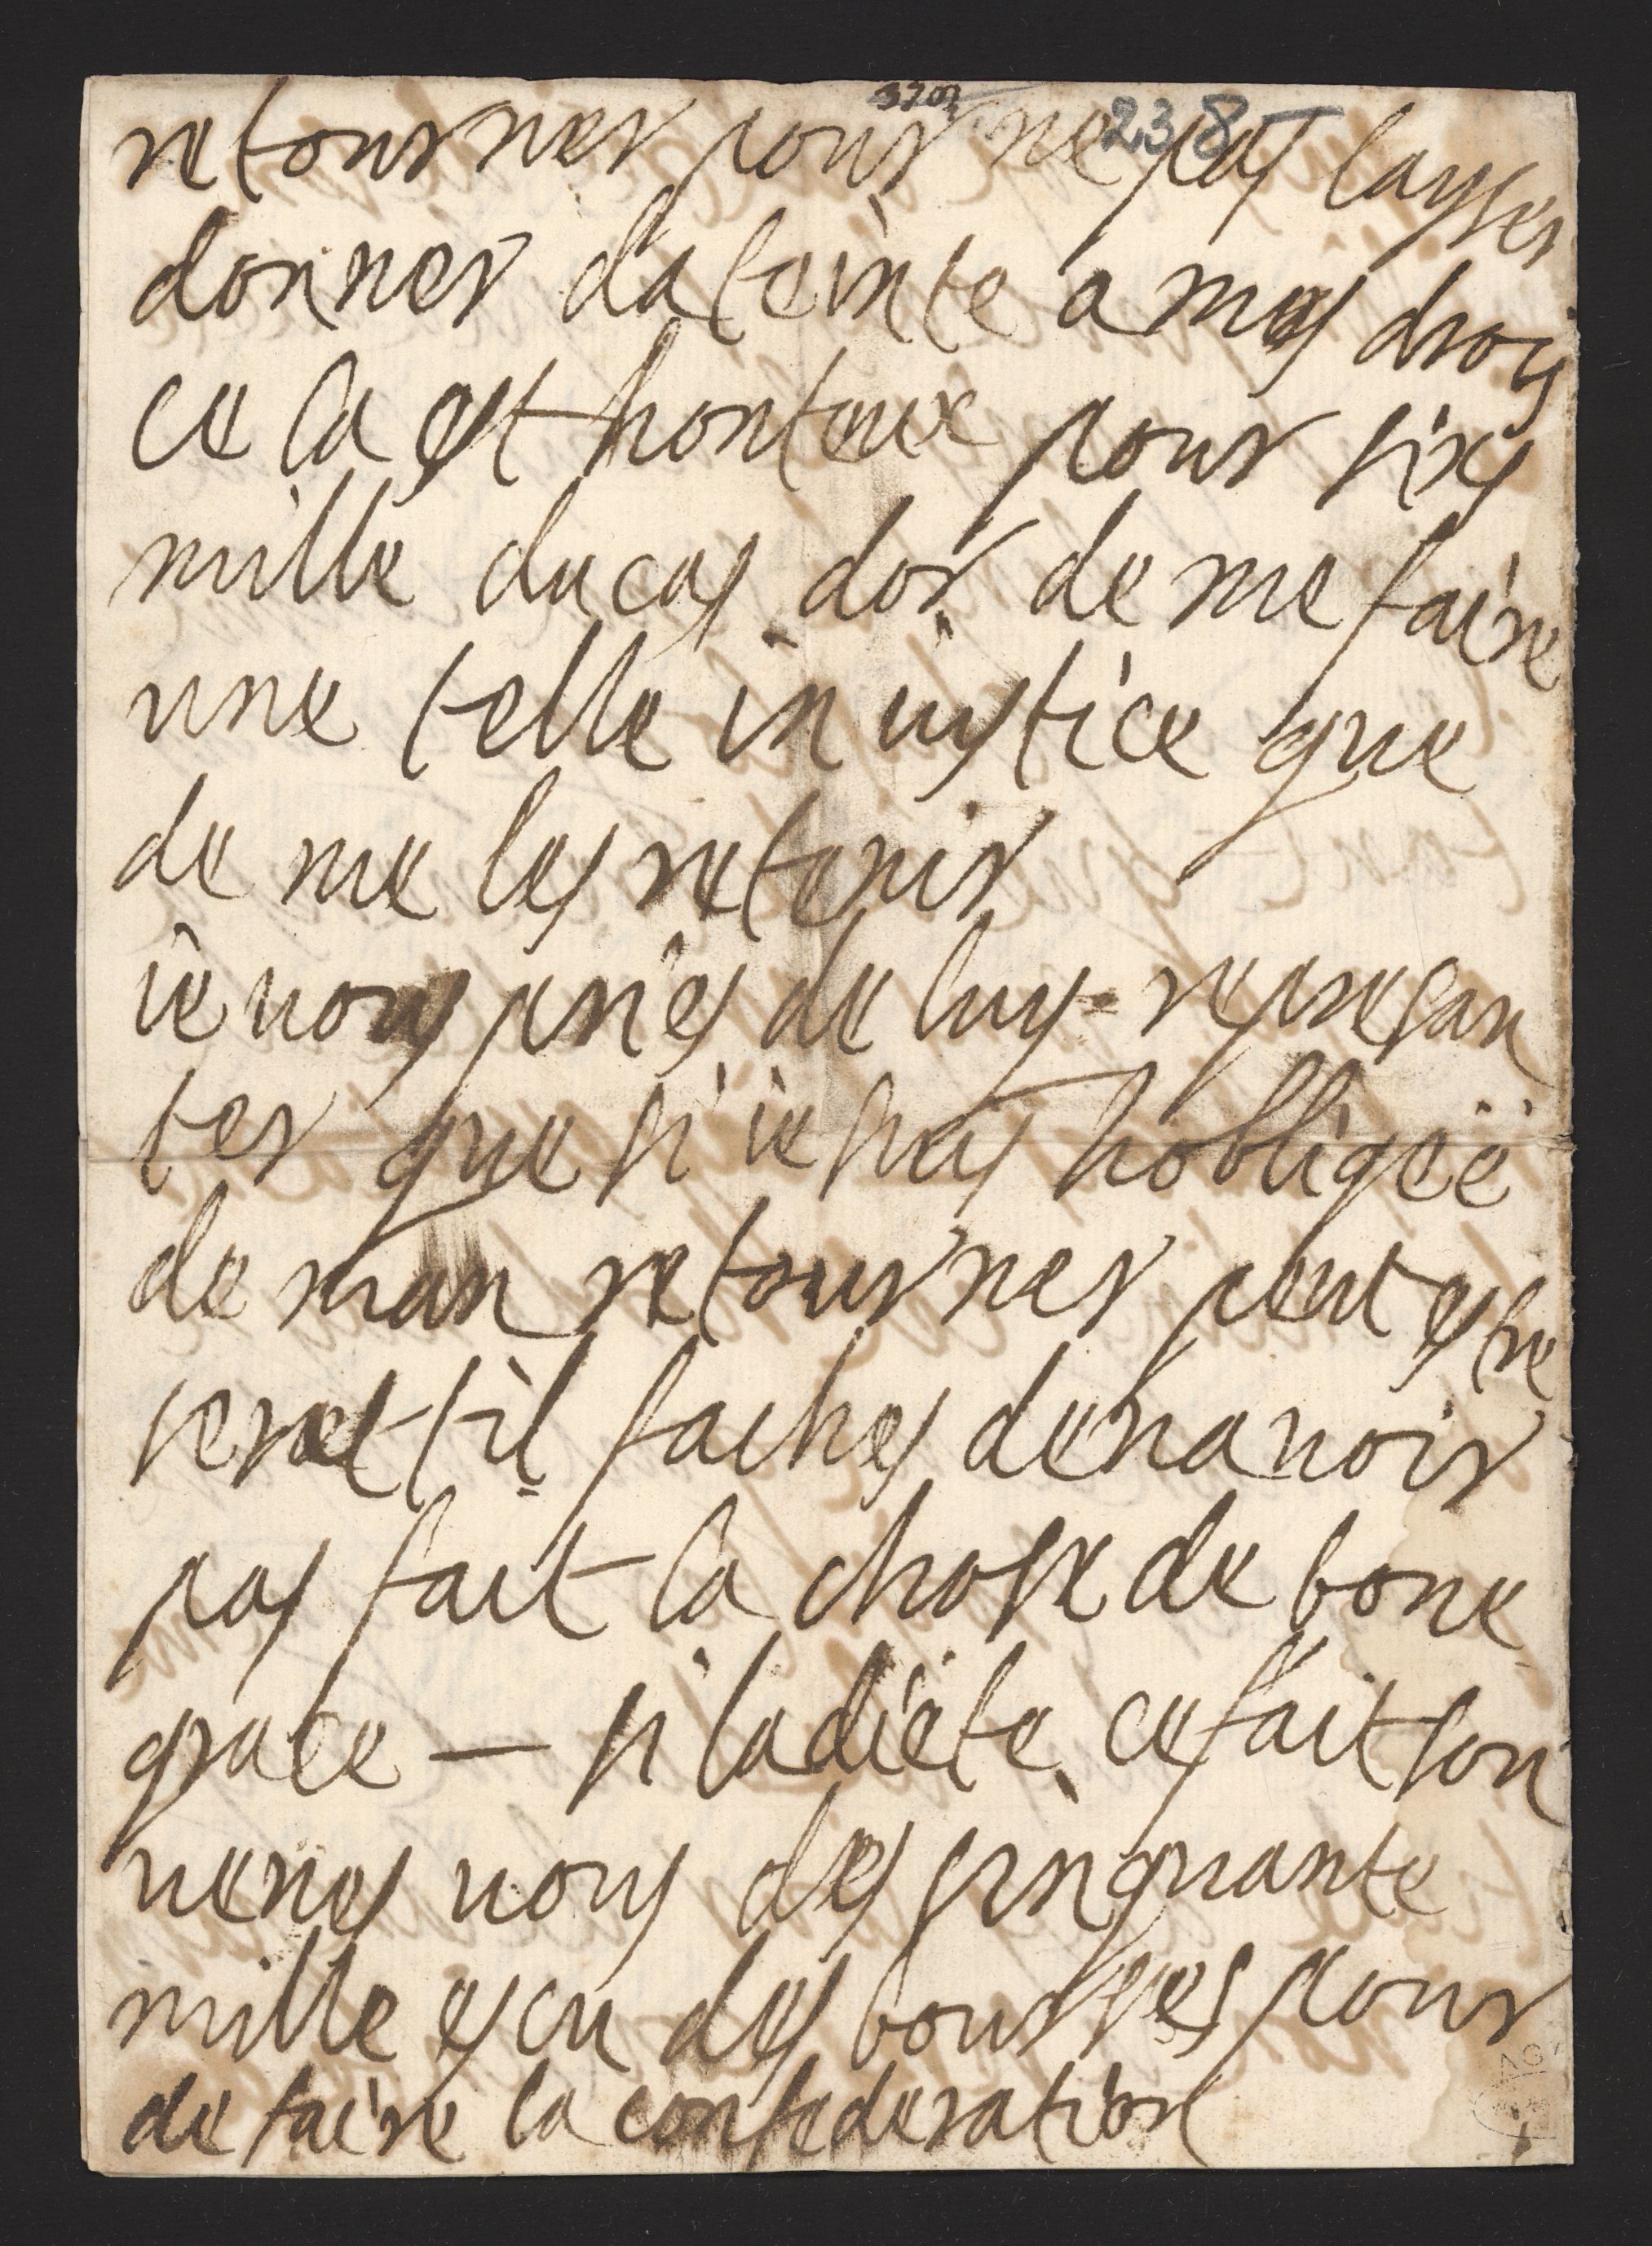 3707
238
retourner pour ne pas laysser
donner dateinte a mes droys
ce la est honteux pour sixs
mille ducas dor de me faire
une telle in iustice que
de me les retenir
ie vous pries de luy represan
ter que si ie suis hobligéé
de man retourner peut estre
seret til faches dehavoir
pas fait la chose de bone
grace — si ladiéte ce fait sou
venes vous des sinquante
mille escu des bourses pour
defaire la confederation